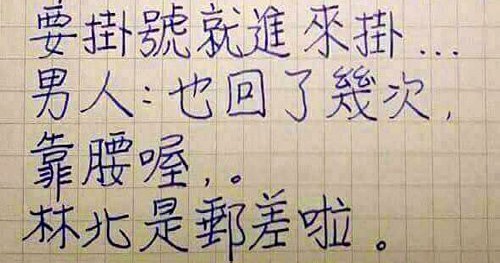 要掛號就進來掛...
男人:也回了幾次,
靠腰喔,。
林北是郵差啦。